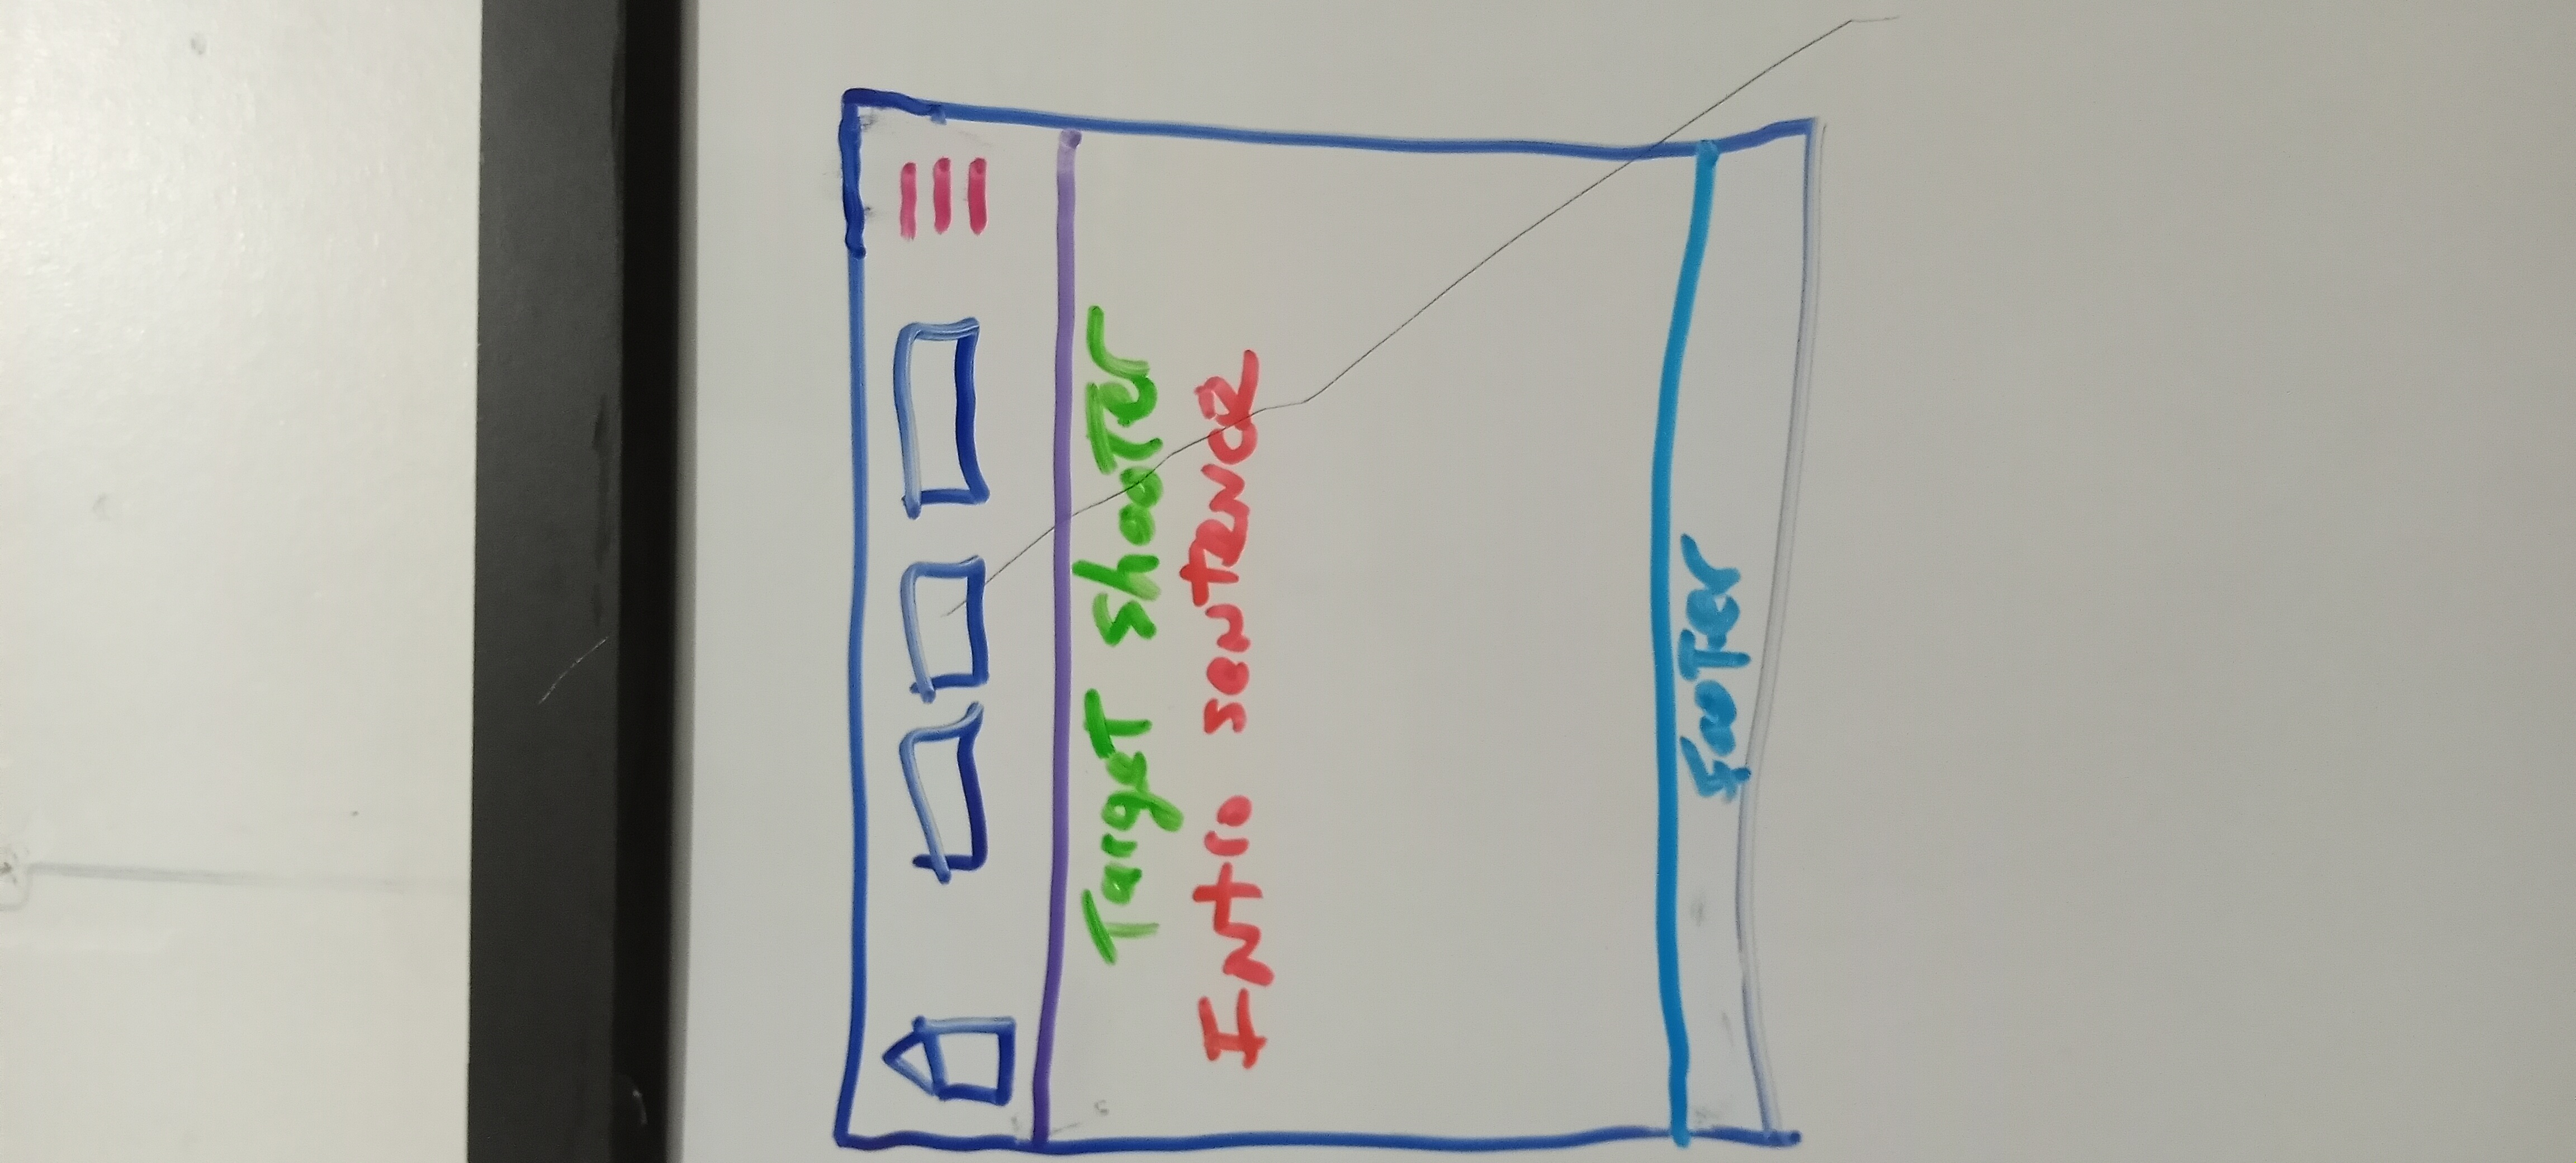 Target Shooter
Intro sentence
Footer